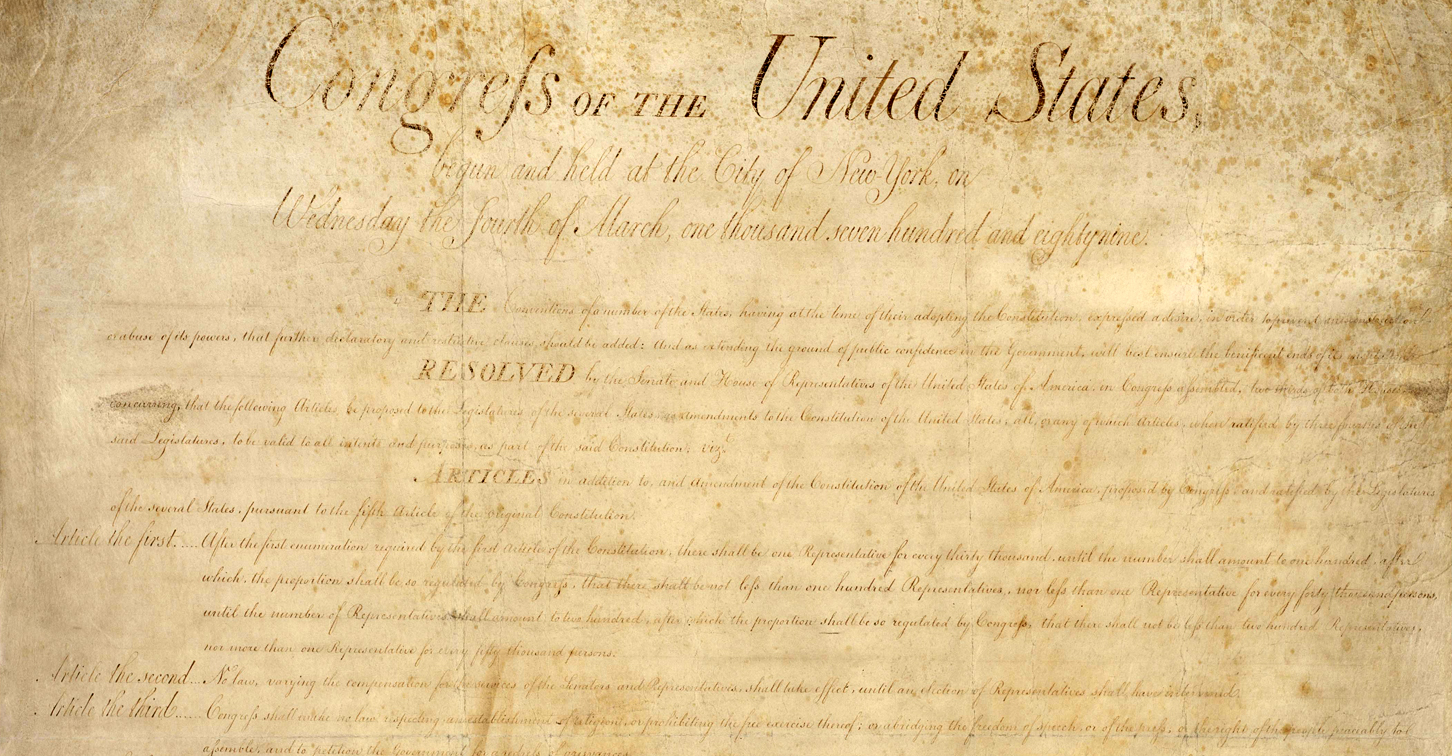 Congreſs OF THE United States,
begun and held at the City of New-York, on
Wednesday the fourth of March, one thousand seven hundred and eighty nine.
THE Conventions of a number of the States, having at the time of their adopting the Constitution, expressed a desire, in order to prevent misconstruction
or abuse of its powers, that further declaratory and restrictive clauses should be added: And as extending the ground of public confidence in the Government, will best ensure the beneficent ends of its
RESOLVED by the Senate and House of Representatives of the United States of America, in Congreſs aſsembled, two thirds of both Houses
concurring, that the following Articles be proposed to the Legislatures of the several States, as amendments to the Constitution of the United States, all, or any of which Articles, when ratified by three fourths of the
said Legislatures, to be valid to all intents and purposes, as part of the said Constitution; viz.
ARTICLES in addition to, and Amendment of the Constitution of the United States of America, proposed by Congreſs, and ratified by the Legislatures
of the several States, pursuant to the fifth Article of the original Constitution.
Article the first..... After the first enumeration required by the first Article of the Constitution, there shall be one Representative for every thirty thousand, until the number shall amount to one hundred, after
which, the proportion shall be so regulated by Congreſs, that there shall be not leſs than one hundred Representatives, nor leſs than one Representative for every forty thousand persons,
until the number of Representatives shall amount to two hundred, after which the proportion shall be so regulated by Congreſs, that there shall not be leſs than two hundred Representatives,
nor more than one Representative for every fifty thousand persons.
Article the second... No law, varying the compensation for the services of the Senators and Representatives, shall take effect, until an election of Representatives shall have intervened.
Article the third...... Congreſs shall make no law respecting an establishment of religion, or prohibiting the free exercise thereof; or abridging the freedom of speech, or of the preſs, or the right of the people peaceably to
aſsemble, and to petition the Government for a redreſs of grievances.